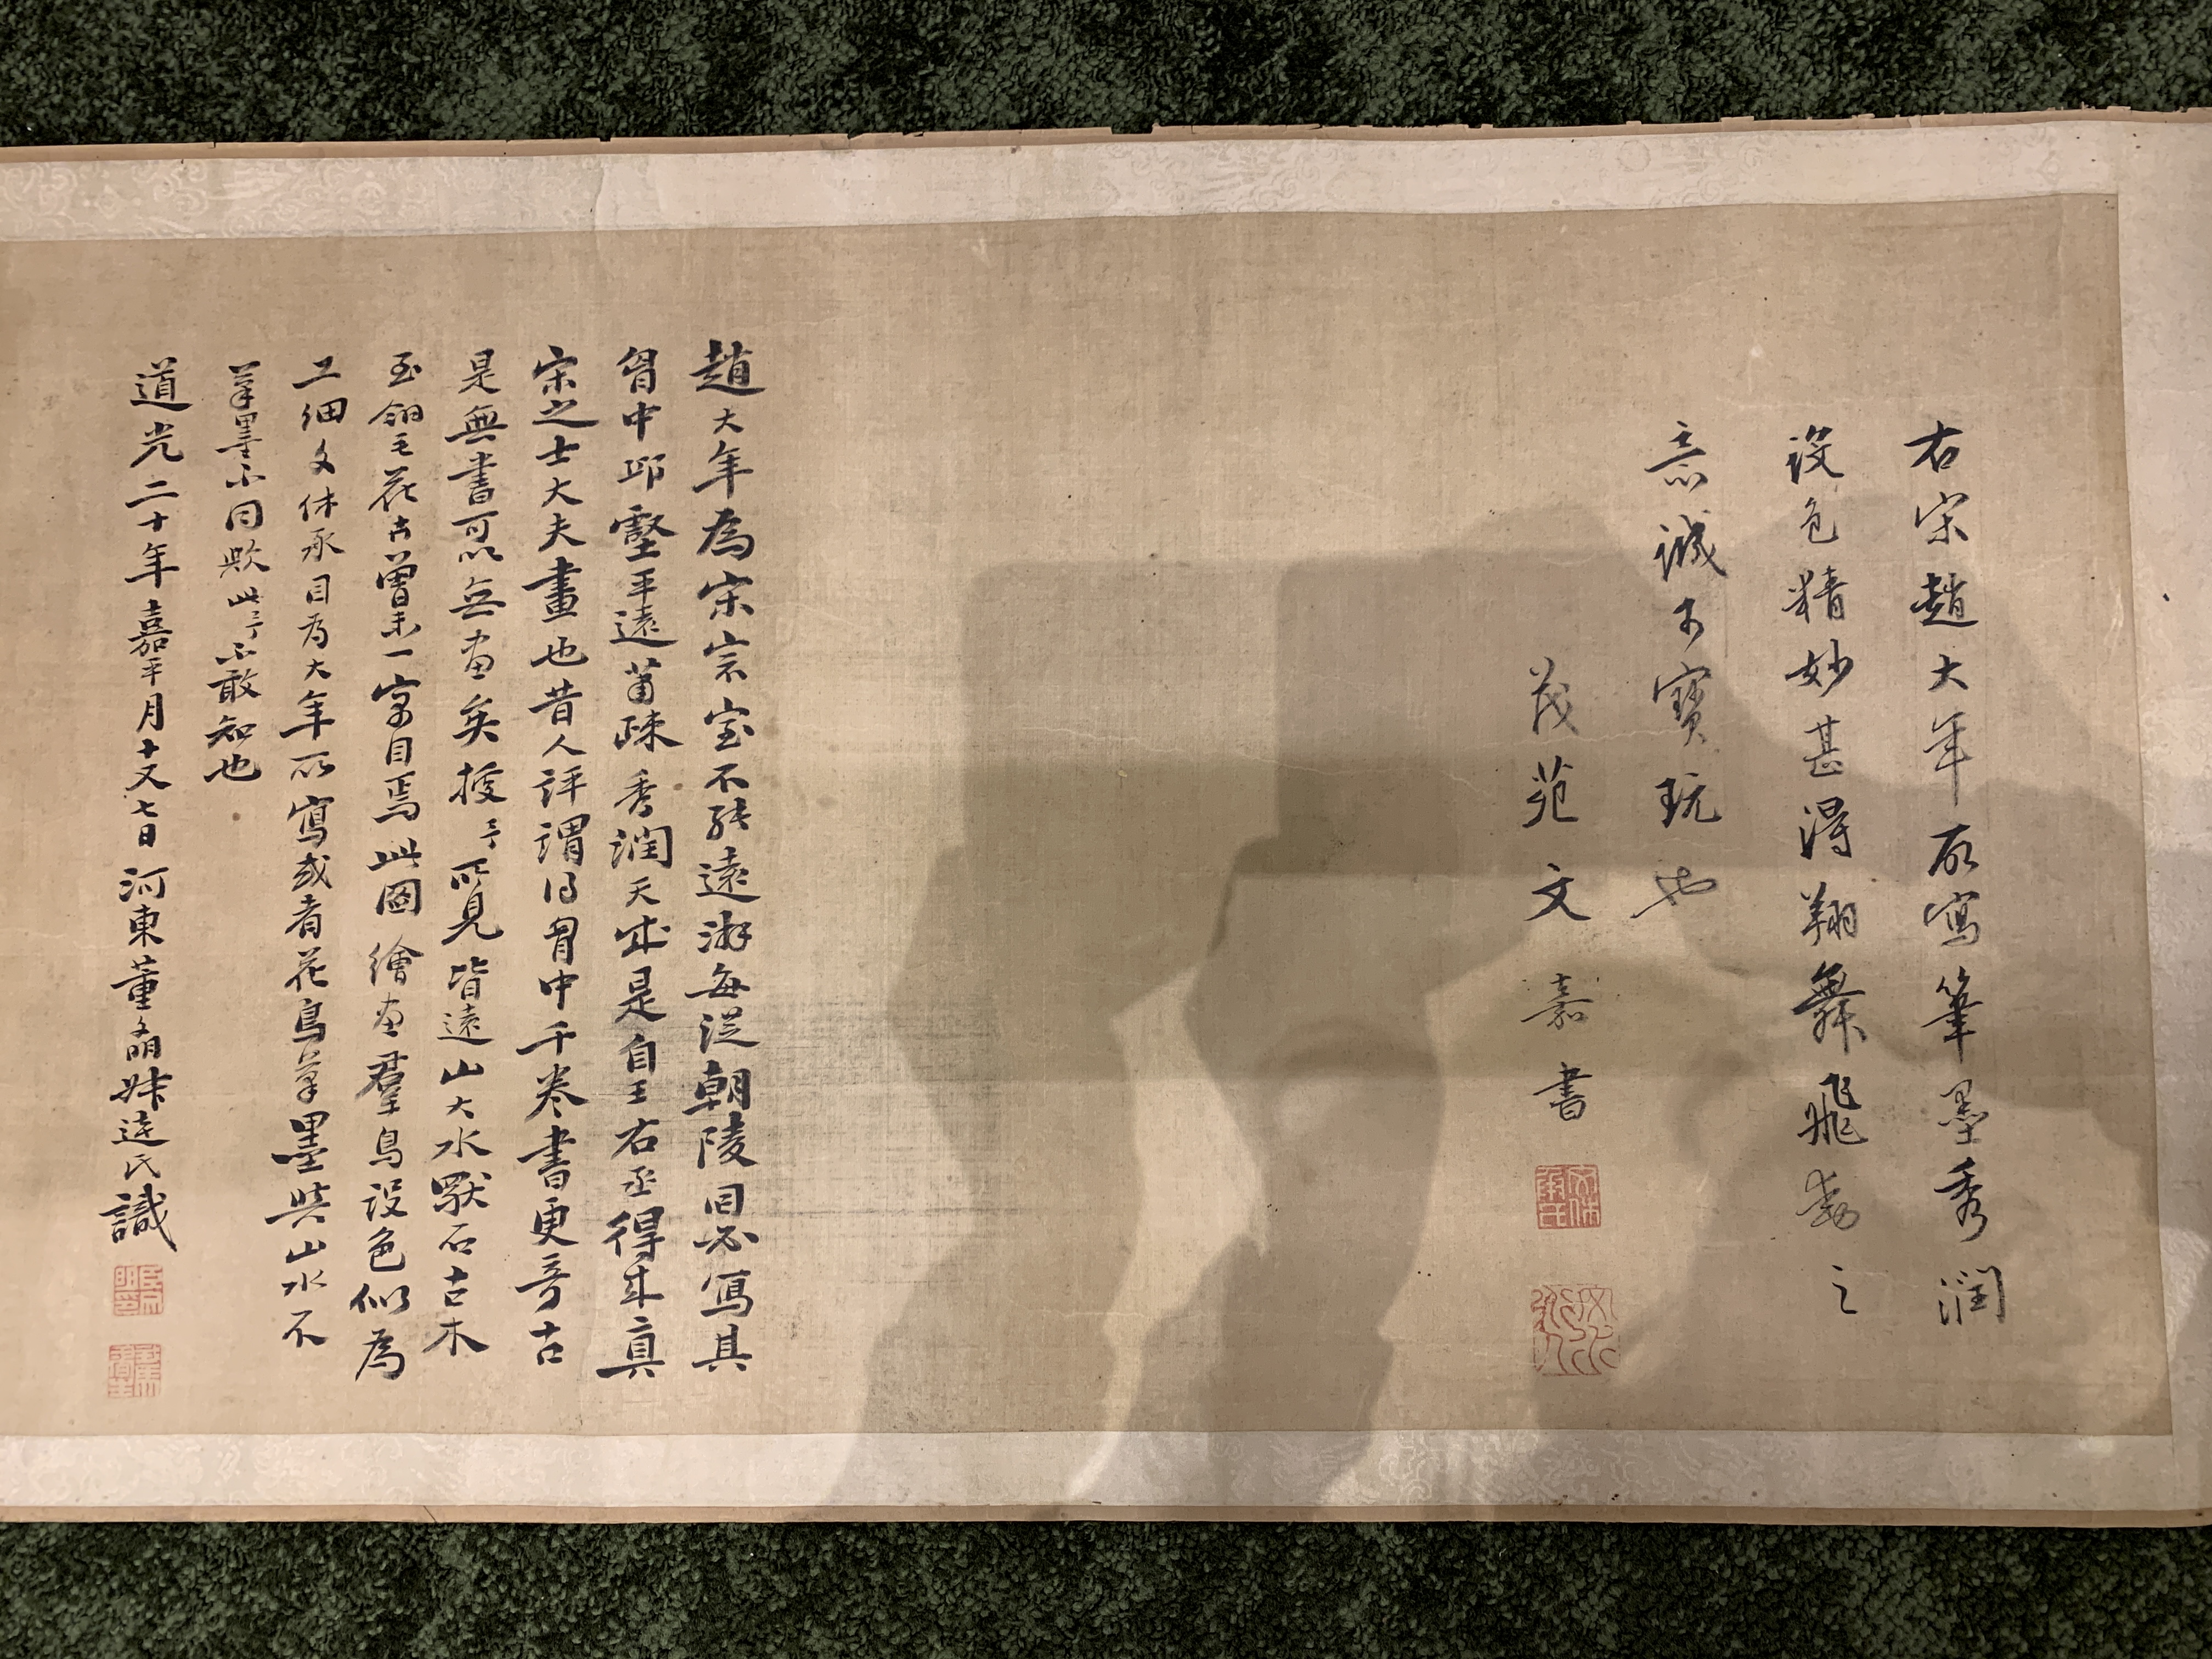 右宋趙大年所寫筆墨秀潤
設色精妙甚得翔舞飛動之
意誠可寶玩也
茂苑文嘉書
趙大年為宋宗室不能遠游每從朝陵回必寫其
胷中邱壑平遠蕭疎秀潤天成是自王右丞得來真
宋之士大夫畫也昔人評謂得胷中千卷書更奇古
是無書可以無畫矣按予所見皆遠山大水獸石古木
至翎毛花卉曾未一寓目焉此圖繪畫羣鳥設色似為
工細文休承目為大年所寫或者花鳥筆墨與山水不
筆墨不同歟此予不敢知也
道光二十年嘉平月十又七日河東董 達氏識
文休承氏